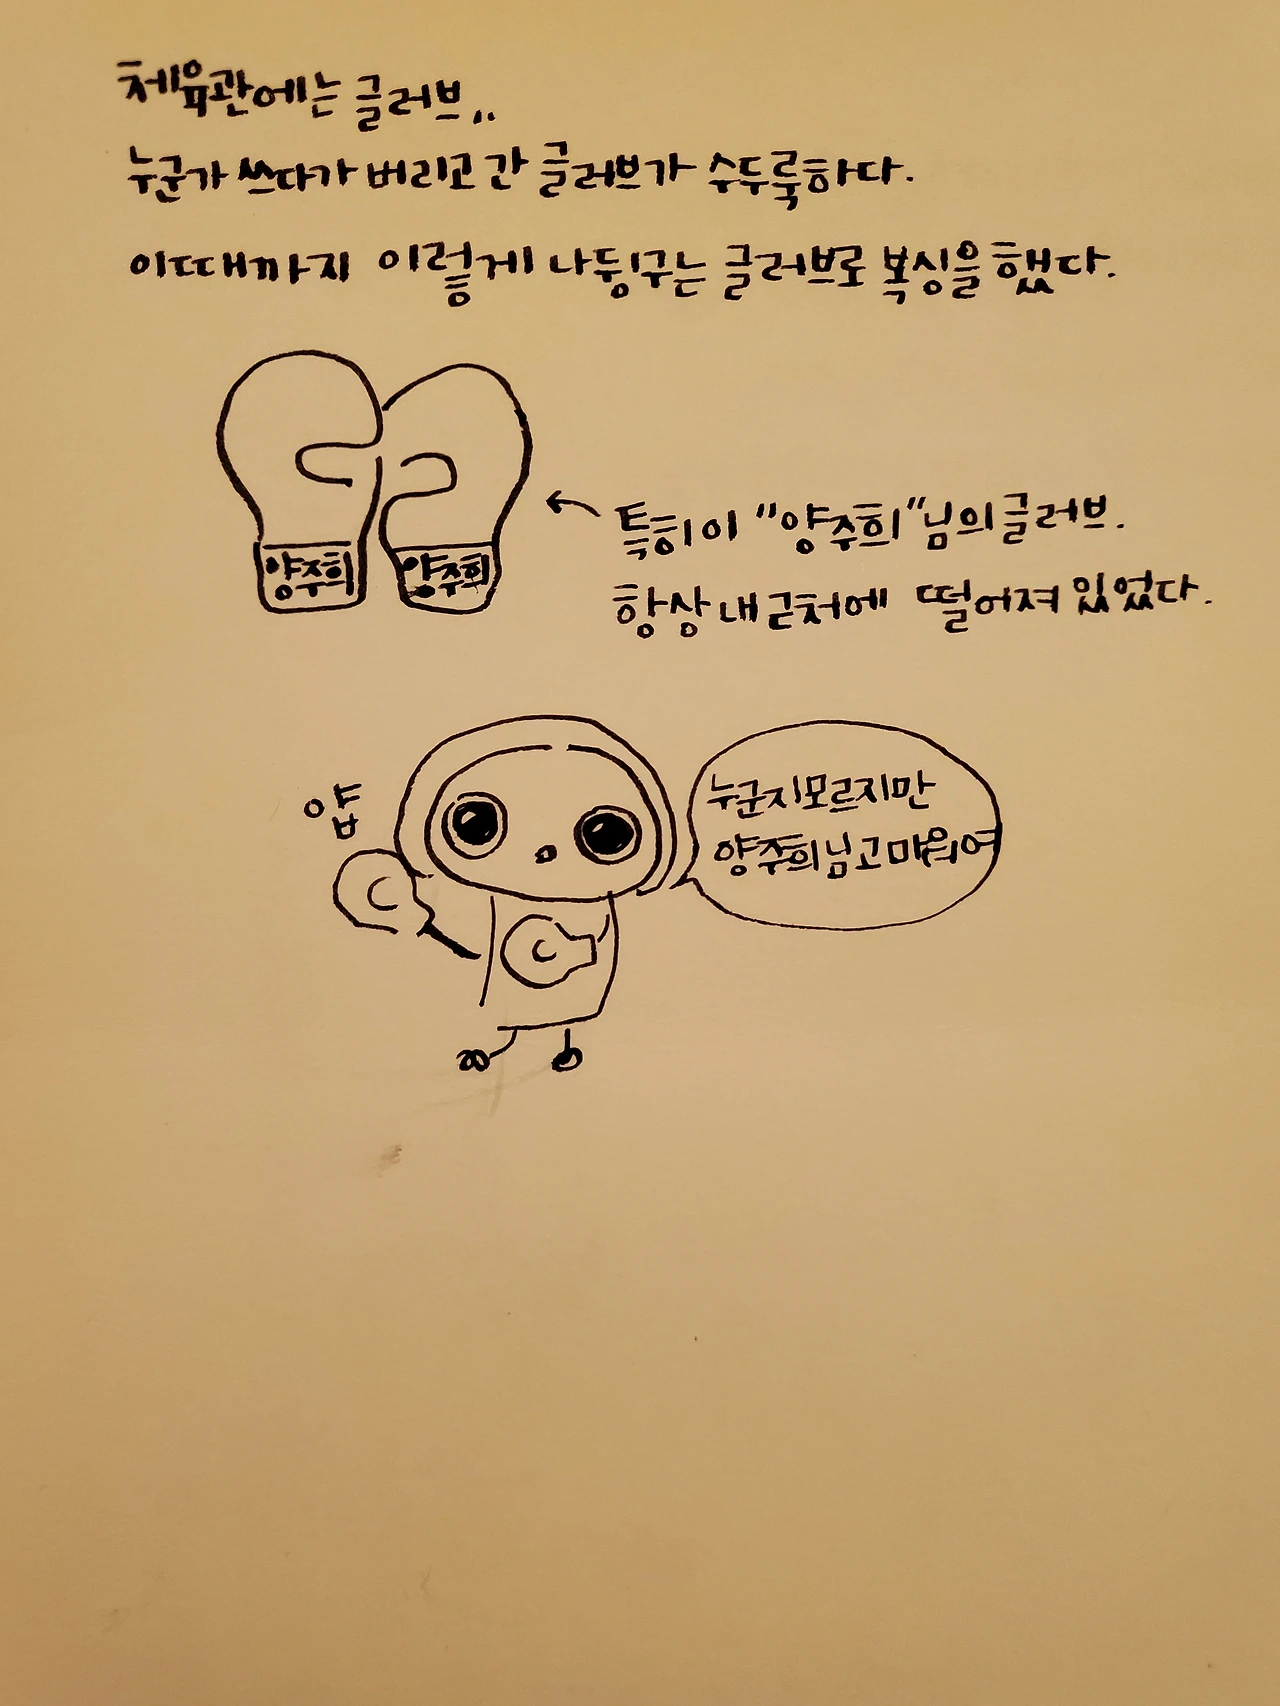 체육관에는 글러브..
누군가 쓰다가 버리고 간 글러브가 수두룩하다.
이때까지 이렇게 나뒹구는 글러브로 복싱을 했다.
양주희 양주희
특히이 "양주희"님의 글러브.
항상 내 근처에 떨어져 있었다.
얍
누군지모르지만
양주희님 고마워여